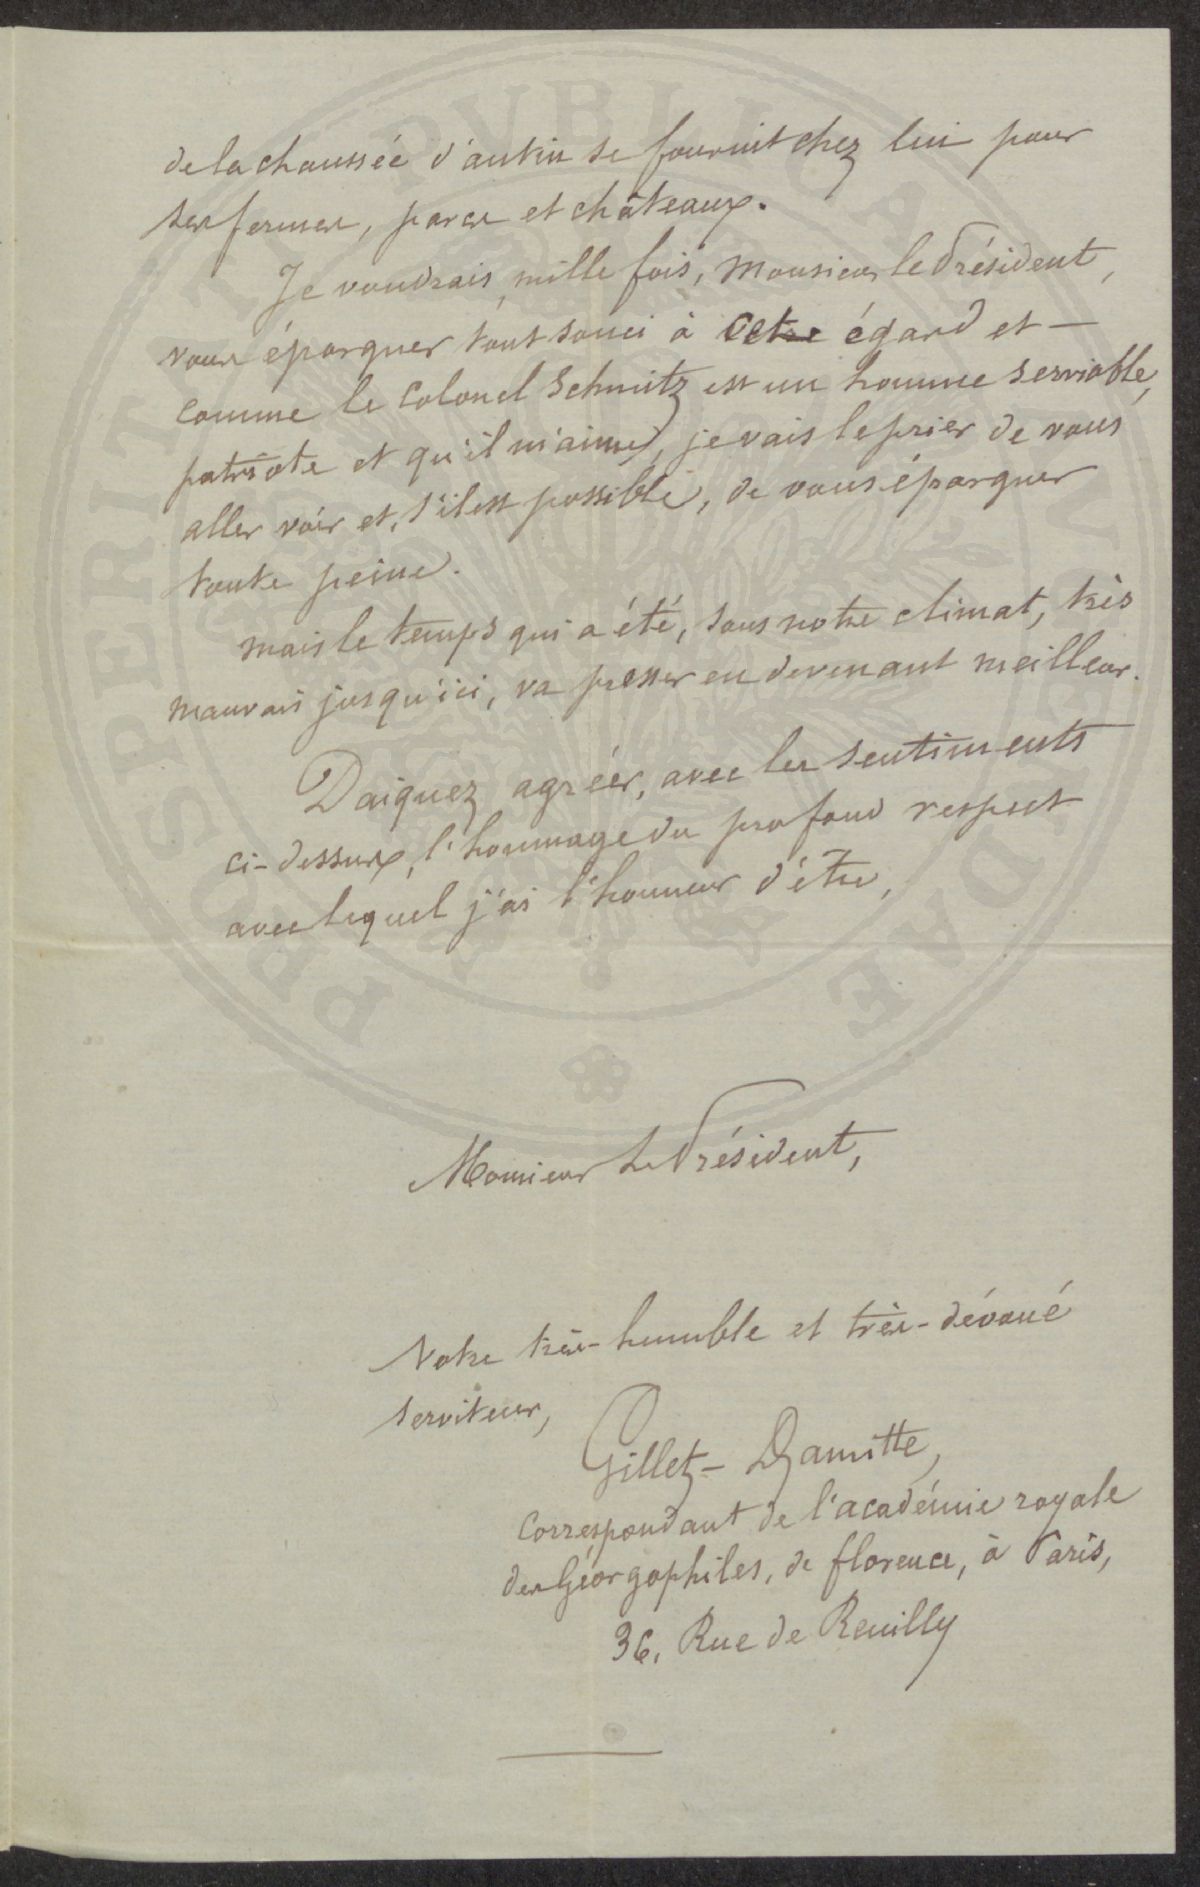 de la chaussée d'antin se fournit chez lui pour
ses fermes, parcs et châteaux.
Je voudrais mille fois, Monsieur le Président,
vous épargner tout souci à cet égard et —
comme le Colonel Schmitz est un homme serviable,
patriote et qu'il m'aime, je vais le prier de vous
aller voir et, s'il est possible, de vous épargner
toute peine.
Mais le temps qui a été, sous notre climat, très
mauvais jusqu'ici, va presser en devenant meilleur.
Daignez agréer, avec les sentiments
ci-dessus, l'hommage du profond respect
avec lequel j'ai l'honneur d'être,
Monsieur le Président,
Votre très-humble et très-dévoué
serviteur,
Gillet-Damitte,
Correspondant de l'académie royale
des Géorgophiles, de florence, à Paris,
36, Rue de Reuilly
PROSPERITATI PUBLICAE AUGENDAE